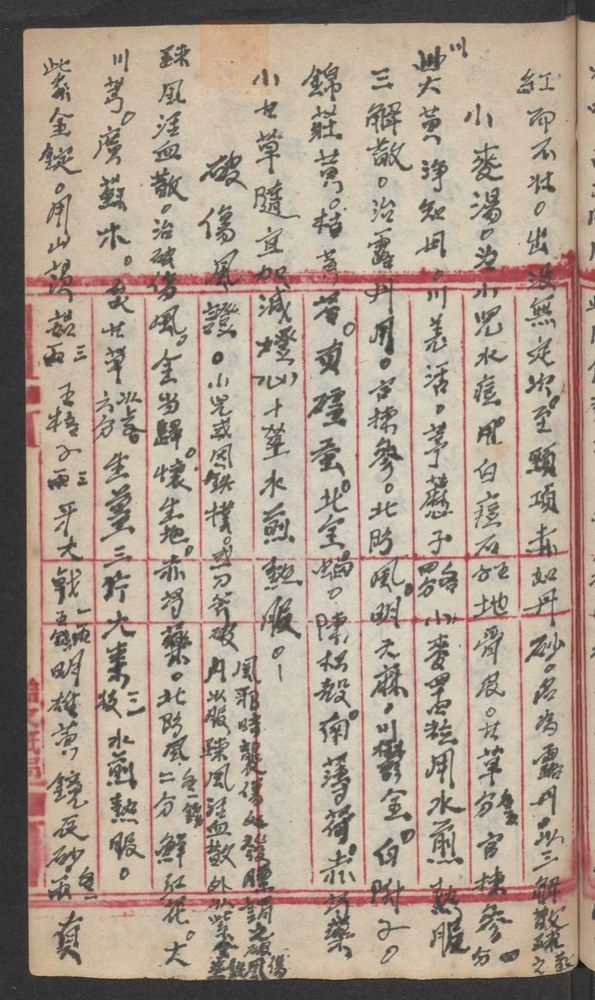 紅而不壯。出沒無定次。至顋項赤如丹砂。名為露丹。以三解散疎之
小麥湯。治小兒水痘。用白滑石 地骨皮。甘草分 官揀參分四
川大黃 淨知母。川羌活。葶藶子各四分 小麥 粒用水煎熱服
三解散。治露丹用。官揀參。北防風。明天麻。川鬱金。白附子。
錦莊黃。枯芩苓。有殭蚕。北全蝎。陳枳殼。南薄荷。赤芍藥
小甘草隨宜加減燈心十莖水煎熱服。
破傷風證。小兒或因鉄撲。或刀斧破 風邪時襲傷處發腫謂之破傷風 內以服疎風活血散外以紫金錠
疎風活血散。治破傷風。全當歸。懷生地。赤芍藥。北防風二分 鮮紅花。大
川芎。廣蘇木。炙甘草以上各六分 生薑三片大棗三枚 水煎熱服。
紫金錠。用山 菇三兩 五棓子三兩 牙大戟 明雄黃 鏡辰砂 真